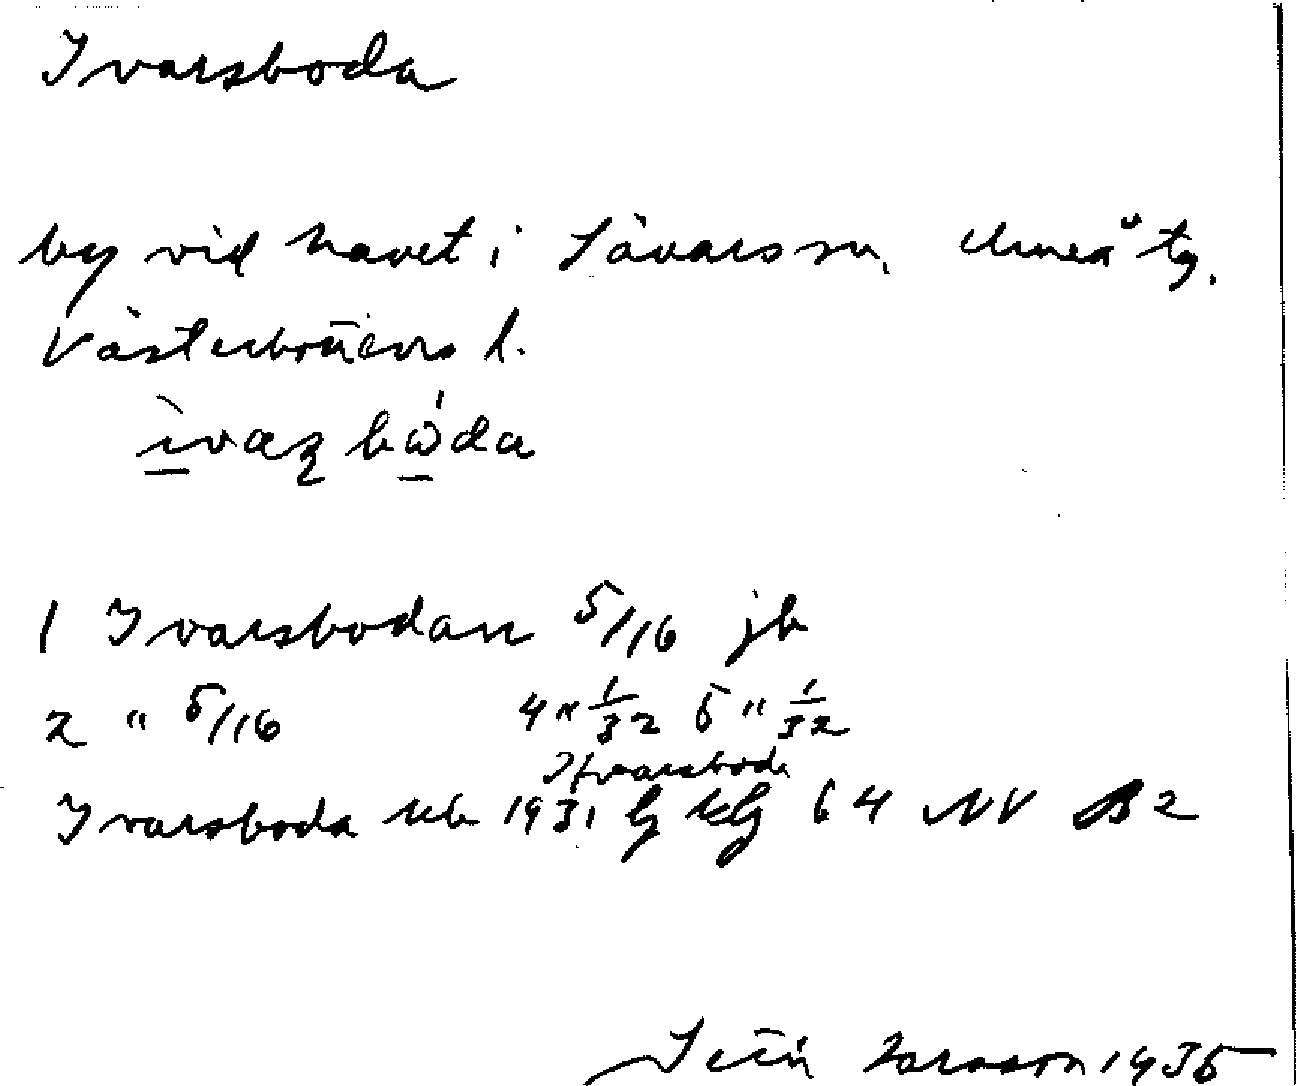 Ivarsboda
by vid havet i Sävars sn, Umeå tg.
Västerbottens l.
ìvaʂ bὼda
1 Ivarsbodan 5/16 jb
2 " 5/16 4 " 1/32 5 " 1/32
Ifvarsboda
Ivarsboda 1931 64 NV B2
Larsson 1935